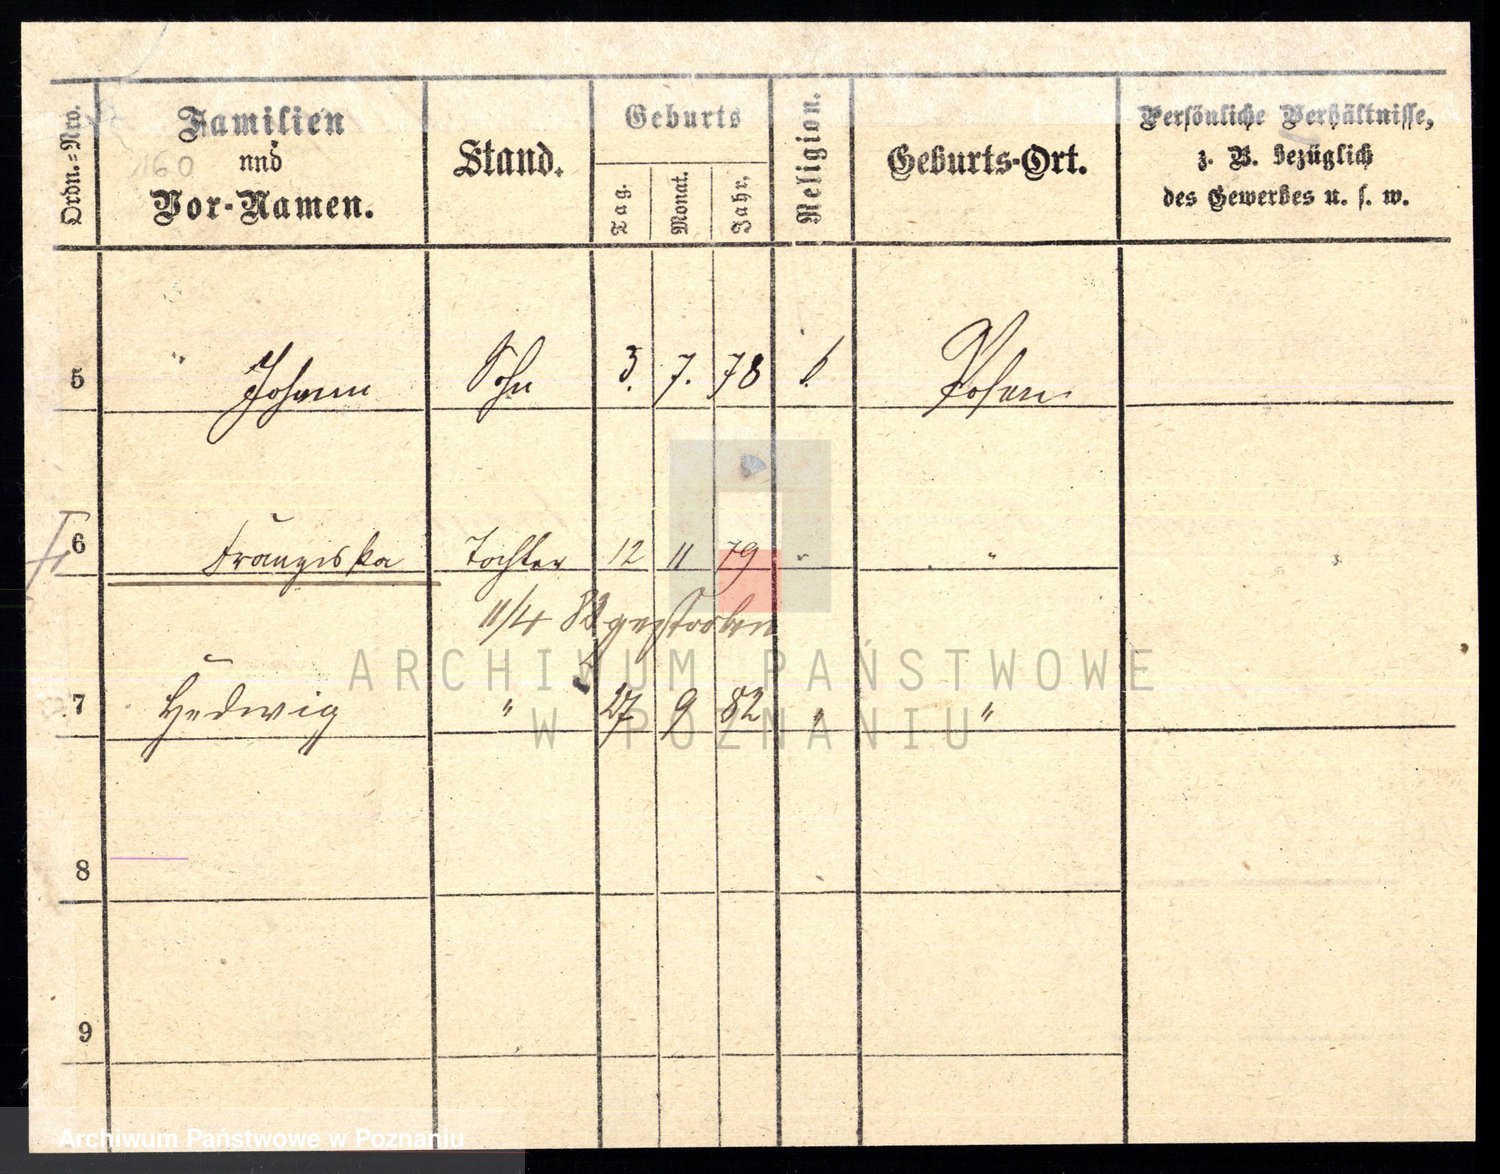 Ordn.=Nro.
Familien
und
Vor-Namen.
160
Stand.
Geburts
Tag.
Monat.
Jahr.
Religion.
Geburts-Ort.
Persönliche Verhältnisse,
z. B. bezüglich
des Gewerbes u. s. w.
5 " Johann Sohn 3. 7. 78 Posen
6 Franziska Tochter 12 11 79 " "
11/4 82 gestorben
7 Hedwig " 27 9 82 " "
8
9
ARCHIWUM PAŃSTWOWE
W POZNANIU
Archiwum Państwowe w Poznaniu